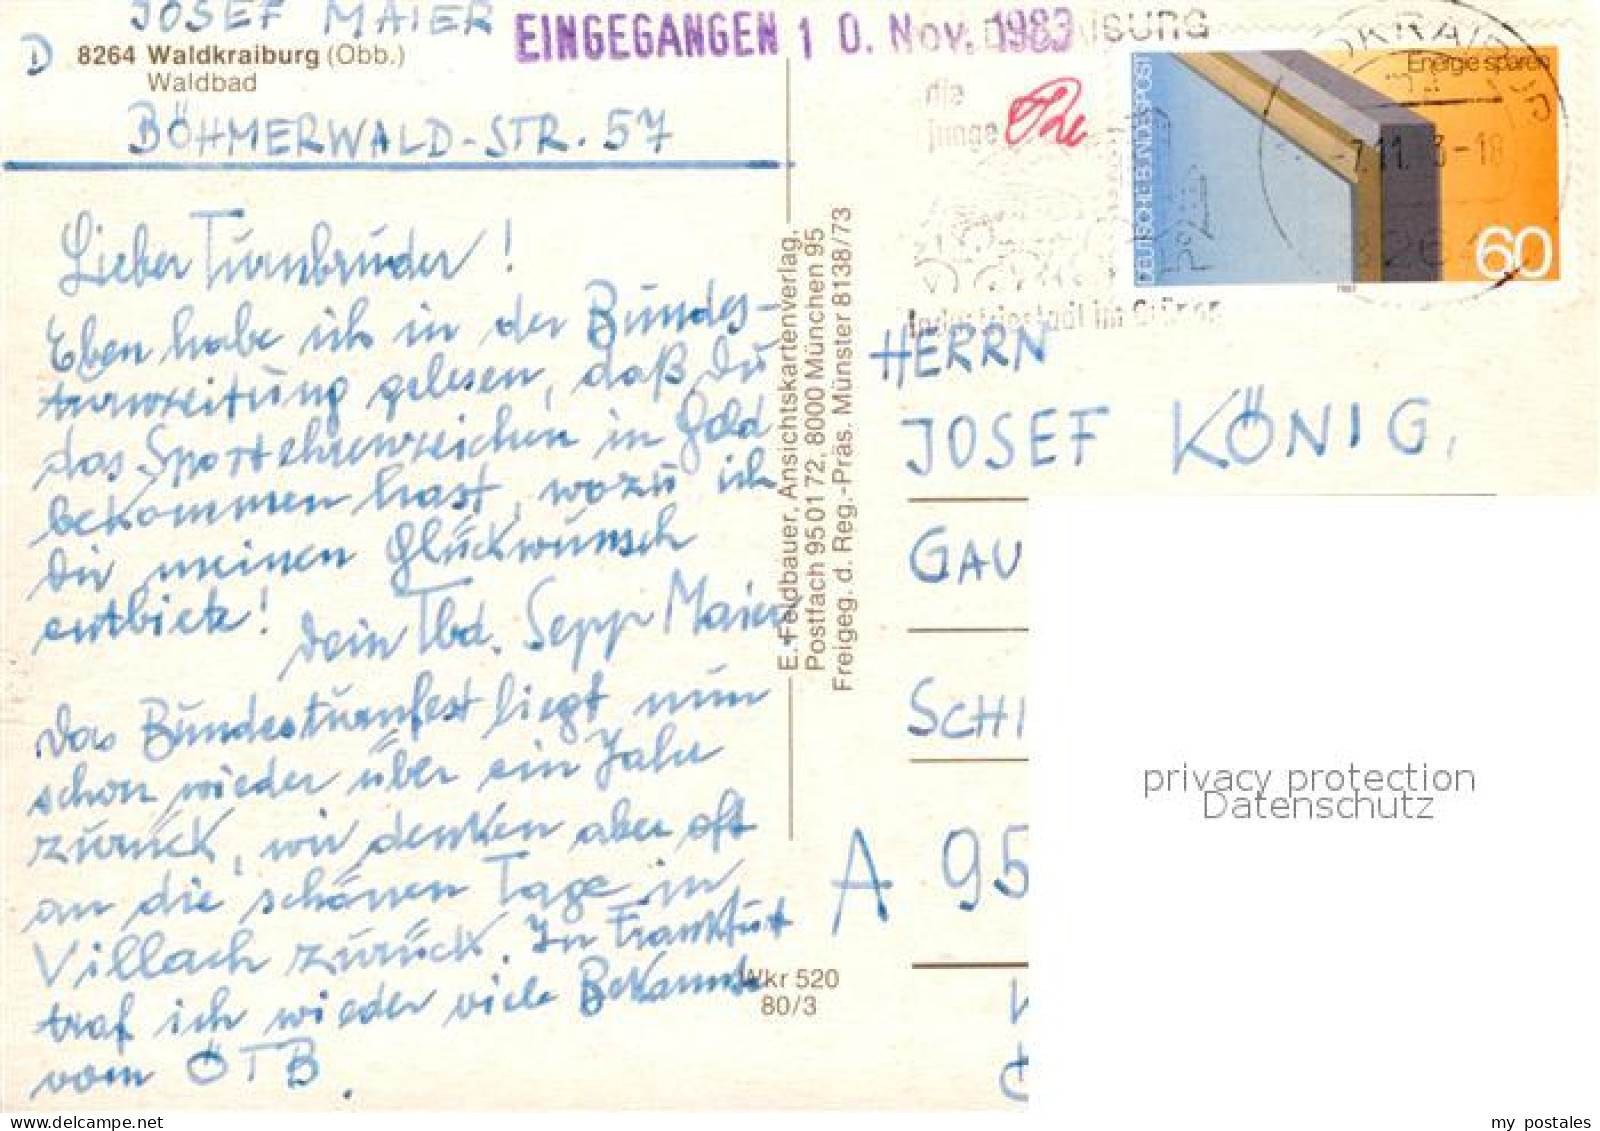 JOSEF MAIER
D 8264 Waldkraiburg (Obb.)
Waldbad
BÖHMERWALD-STR. 57
Lieber Turnbruder!
Eben habe ich in der Bundes-
turnzeitung gelesen, daß Du
das Sportehrenzeichen in Gold
bekommen hast, wozu ich
Dir meinen Glückwunsch
entbiete!
Dein Tbd. Sepp Maier
Das Bundesturnfest liegt nun
schon wieder über ein Jahr
zurück, wir denken aber oft
an die schönen Tage in
Villach zurück. In Frankfurt
traf ich wieder viele Bekannte
vom ÖTB.
E. Feldbauer, Ansichtskartenverlag,
Postfach 95 01 72, 8000 München 95
Freigeg. d. Reg.-Präs. Münster 8138/73
Wkr 520
80/3
EINGEGANGEN 1 0. Nov. 1983
die
junge
Industriestadt im Grünen
DEUTSCHE BUNDESPOST
Energie sparen
60
HERRN
JOSEF KÖNIG,
GAU
SCHI
A 95
privacy protection
Datenschutz
delcampe.net
my_postales